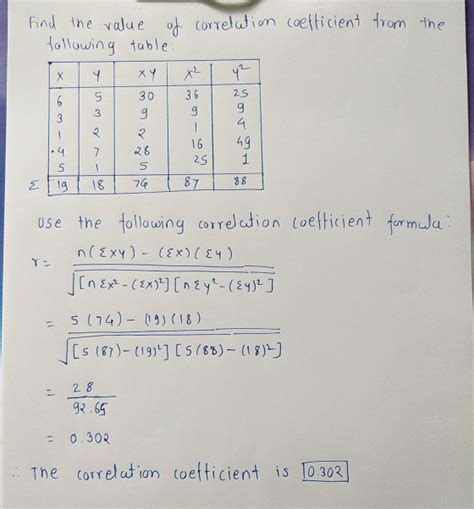 Find the value of correlation coefficient from the
following table:
x y xy x² y²
6 5 30 36 25
3 3 9 9 9
1 2 2 1 4
4 7 28 16 49
5 1 5 25 1
Σ 19 18 74 87 88
Use the following correlation coefficient formula:
r = n(Σxy) - (Σx)(Σy)
√[nΣx² - (Σx)²][nΣy² - (Σy)²]
= 5(74) - (19)(18)
√[5(87) - (19)²][5(88) - (18)²]
= 28
92.65
= 0.302
∴ The correlation coefficient is 0.302